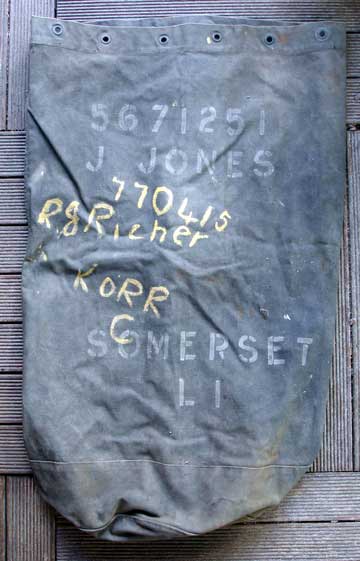 5671251
J JONES
770415
R.J Richer
K KORR
C
SOMERSET
L I